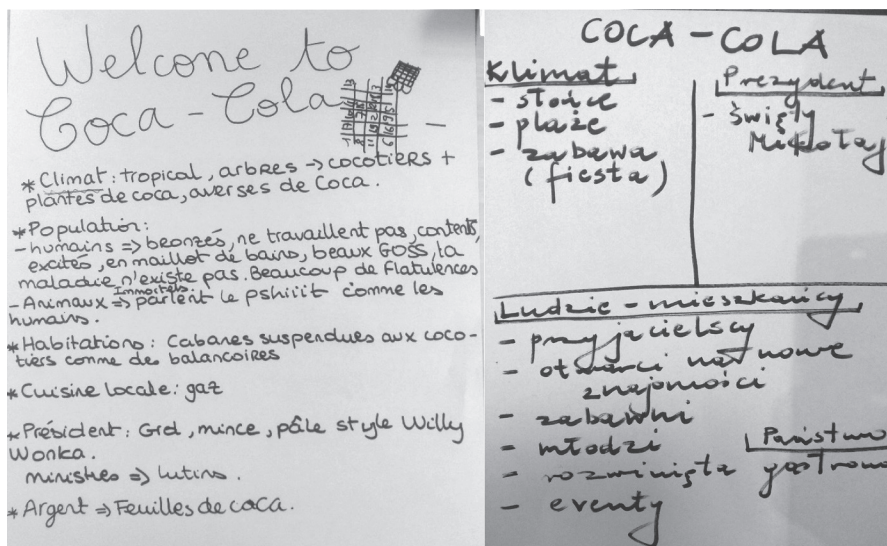 Welcome to
Coca-Cola
* Climat: tropical, arbres → cocotiers +
plantes de coca, averses de Coca.
* Population:
- humains => bronzés, ne travaillent pas, contents,
excités, en maillot de bains, beaux GOSS, la
maladie n'existe pas. Beaucoup de flatulences
Immortels.
- Animaux => parlent le pshiiit comme les
humains.
* Habitations: Cabanes suspendues aux coco-
tiers comme des balancoires
* Cuisine locale: gaz
* Président: Grd, mince, pâle style Willy
Wonka.
ministres => lutins.
* Argent => Feuilles de coca.
COCA-COLA
Klimat
- słońce
- plaże
- zabawa
(fiesta)
Prezydent
- Święty
Mikołaj
Ludzie - mieszkańcy
- przyjacielscy
- otwarci na nowe
znajomości
- zabawni
- młodzi
- rozwinięta gastrono
- eventy
Państwo